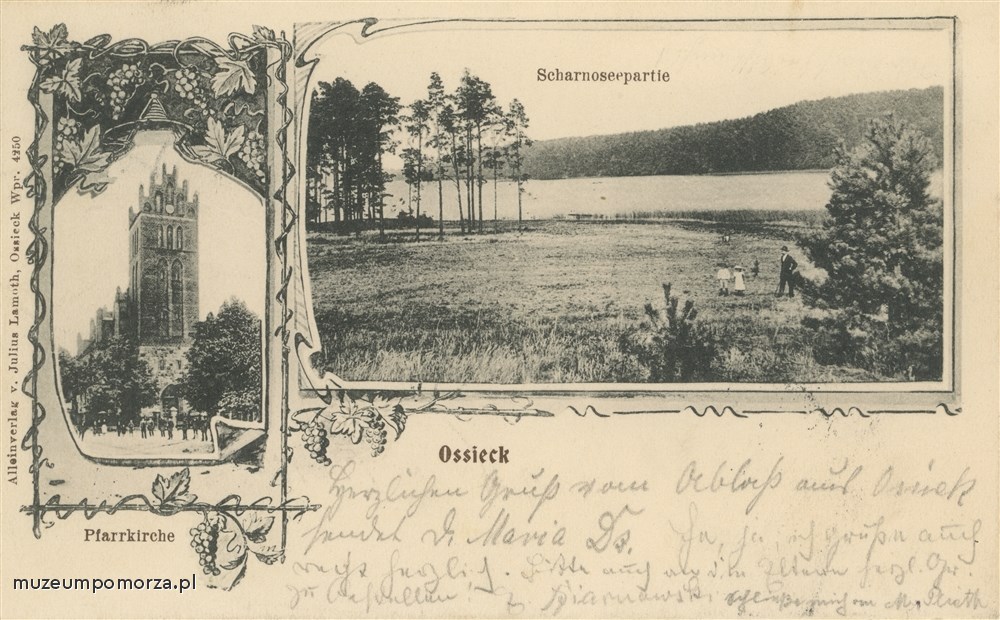 Scharnoseepartie
Alleinverlag v. Julius Lamoth, Ossieck Wpr. 4250
Ossieck
Pfarrkirche
Herzlichen Gruß vom Ablaß aus Ossiek
sendet Dir Maria Ds. Ja, ja, ich grüße auch
recht herzlich. Bitte auch an die Eltern herzl. Gr.
zu bestellen!
muzeumpomorza.pl